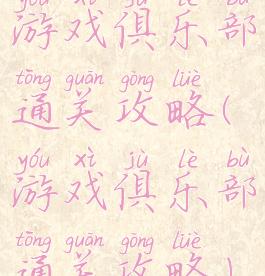 yóu xì jù lè bù
游戏俱乐部
tōng guān gōng lüè
通关攻略(
yóu xì jù lè bù
游戏俱乐部
tōng guān gōng lüè
通关攻略)